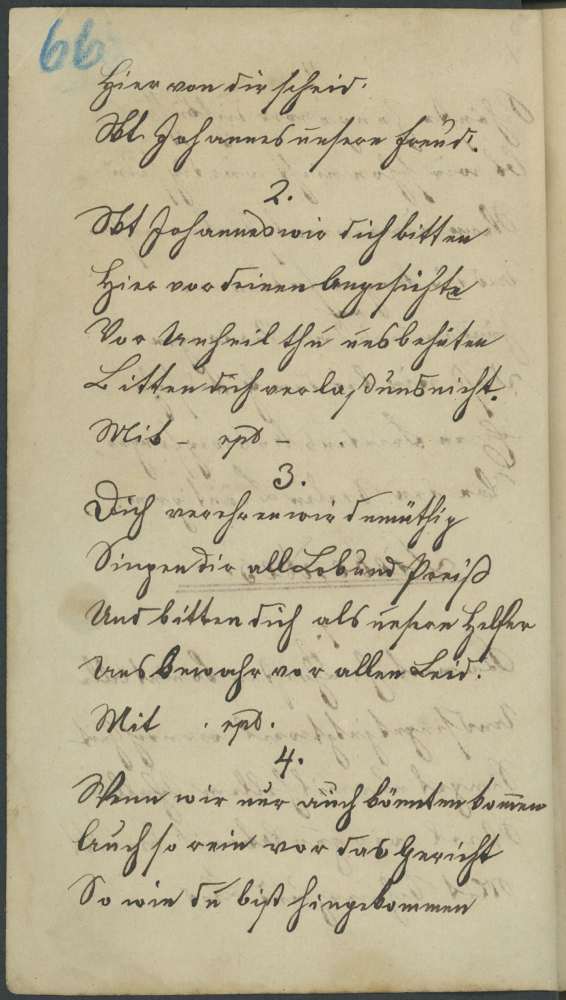 66
Hier von dir scheid.
Skt Johannes unsere Freud.
2.
Skt Johannes wir dich bitten
Hier vor deinen Angesichte
Vor Unheil thu uns behüten
Bitten dich verlaß uns nicht.
Mit - rpt -
3.
Dich verehren wir demüthig
Singen dir all Lob und Preiß
Und bitten dich als unsern Helfer
Uns bewahr vor allen Leid.
Mit . rpt.
4.
Wenn wir nur auch könnten kom̄en
Auch so rein vor das Gericht
So wie du bist hingekommen